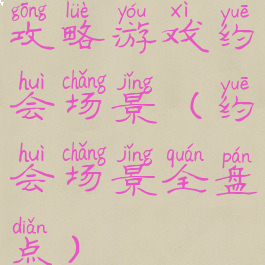 gōng lüè yóu xì yuē
攻略游戏约
huì chǎng jǐng yuē
会场景（约
huì chǎng jǐng quán pán
会场景全盘
diǎn
点）